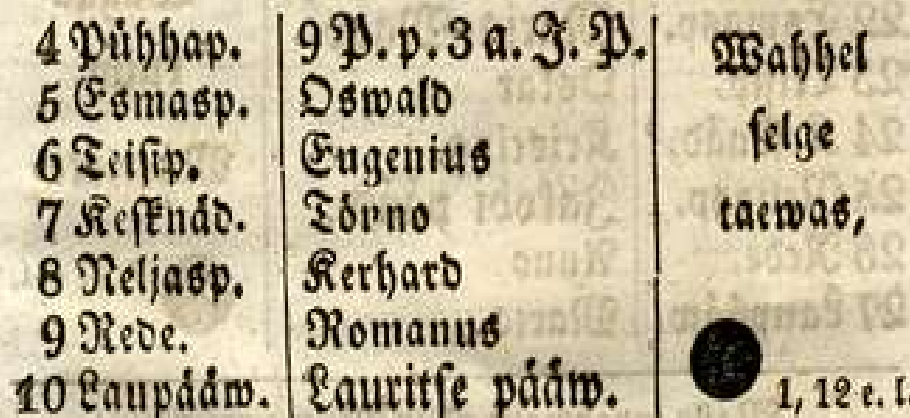 4 Pühhap. 9 P. p. 3 a. J. P. Wahhel
5 Esmasp. Oswald selge
6 Teisip. Eugenius
7 Kesknäd. Törno taewas,
8 Neljasp. Kerhard
9 Rede. Romanus
10 Laupääw. Lauritse pääw. 1, 12 e. l.